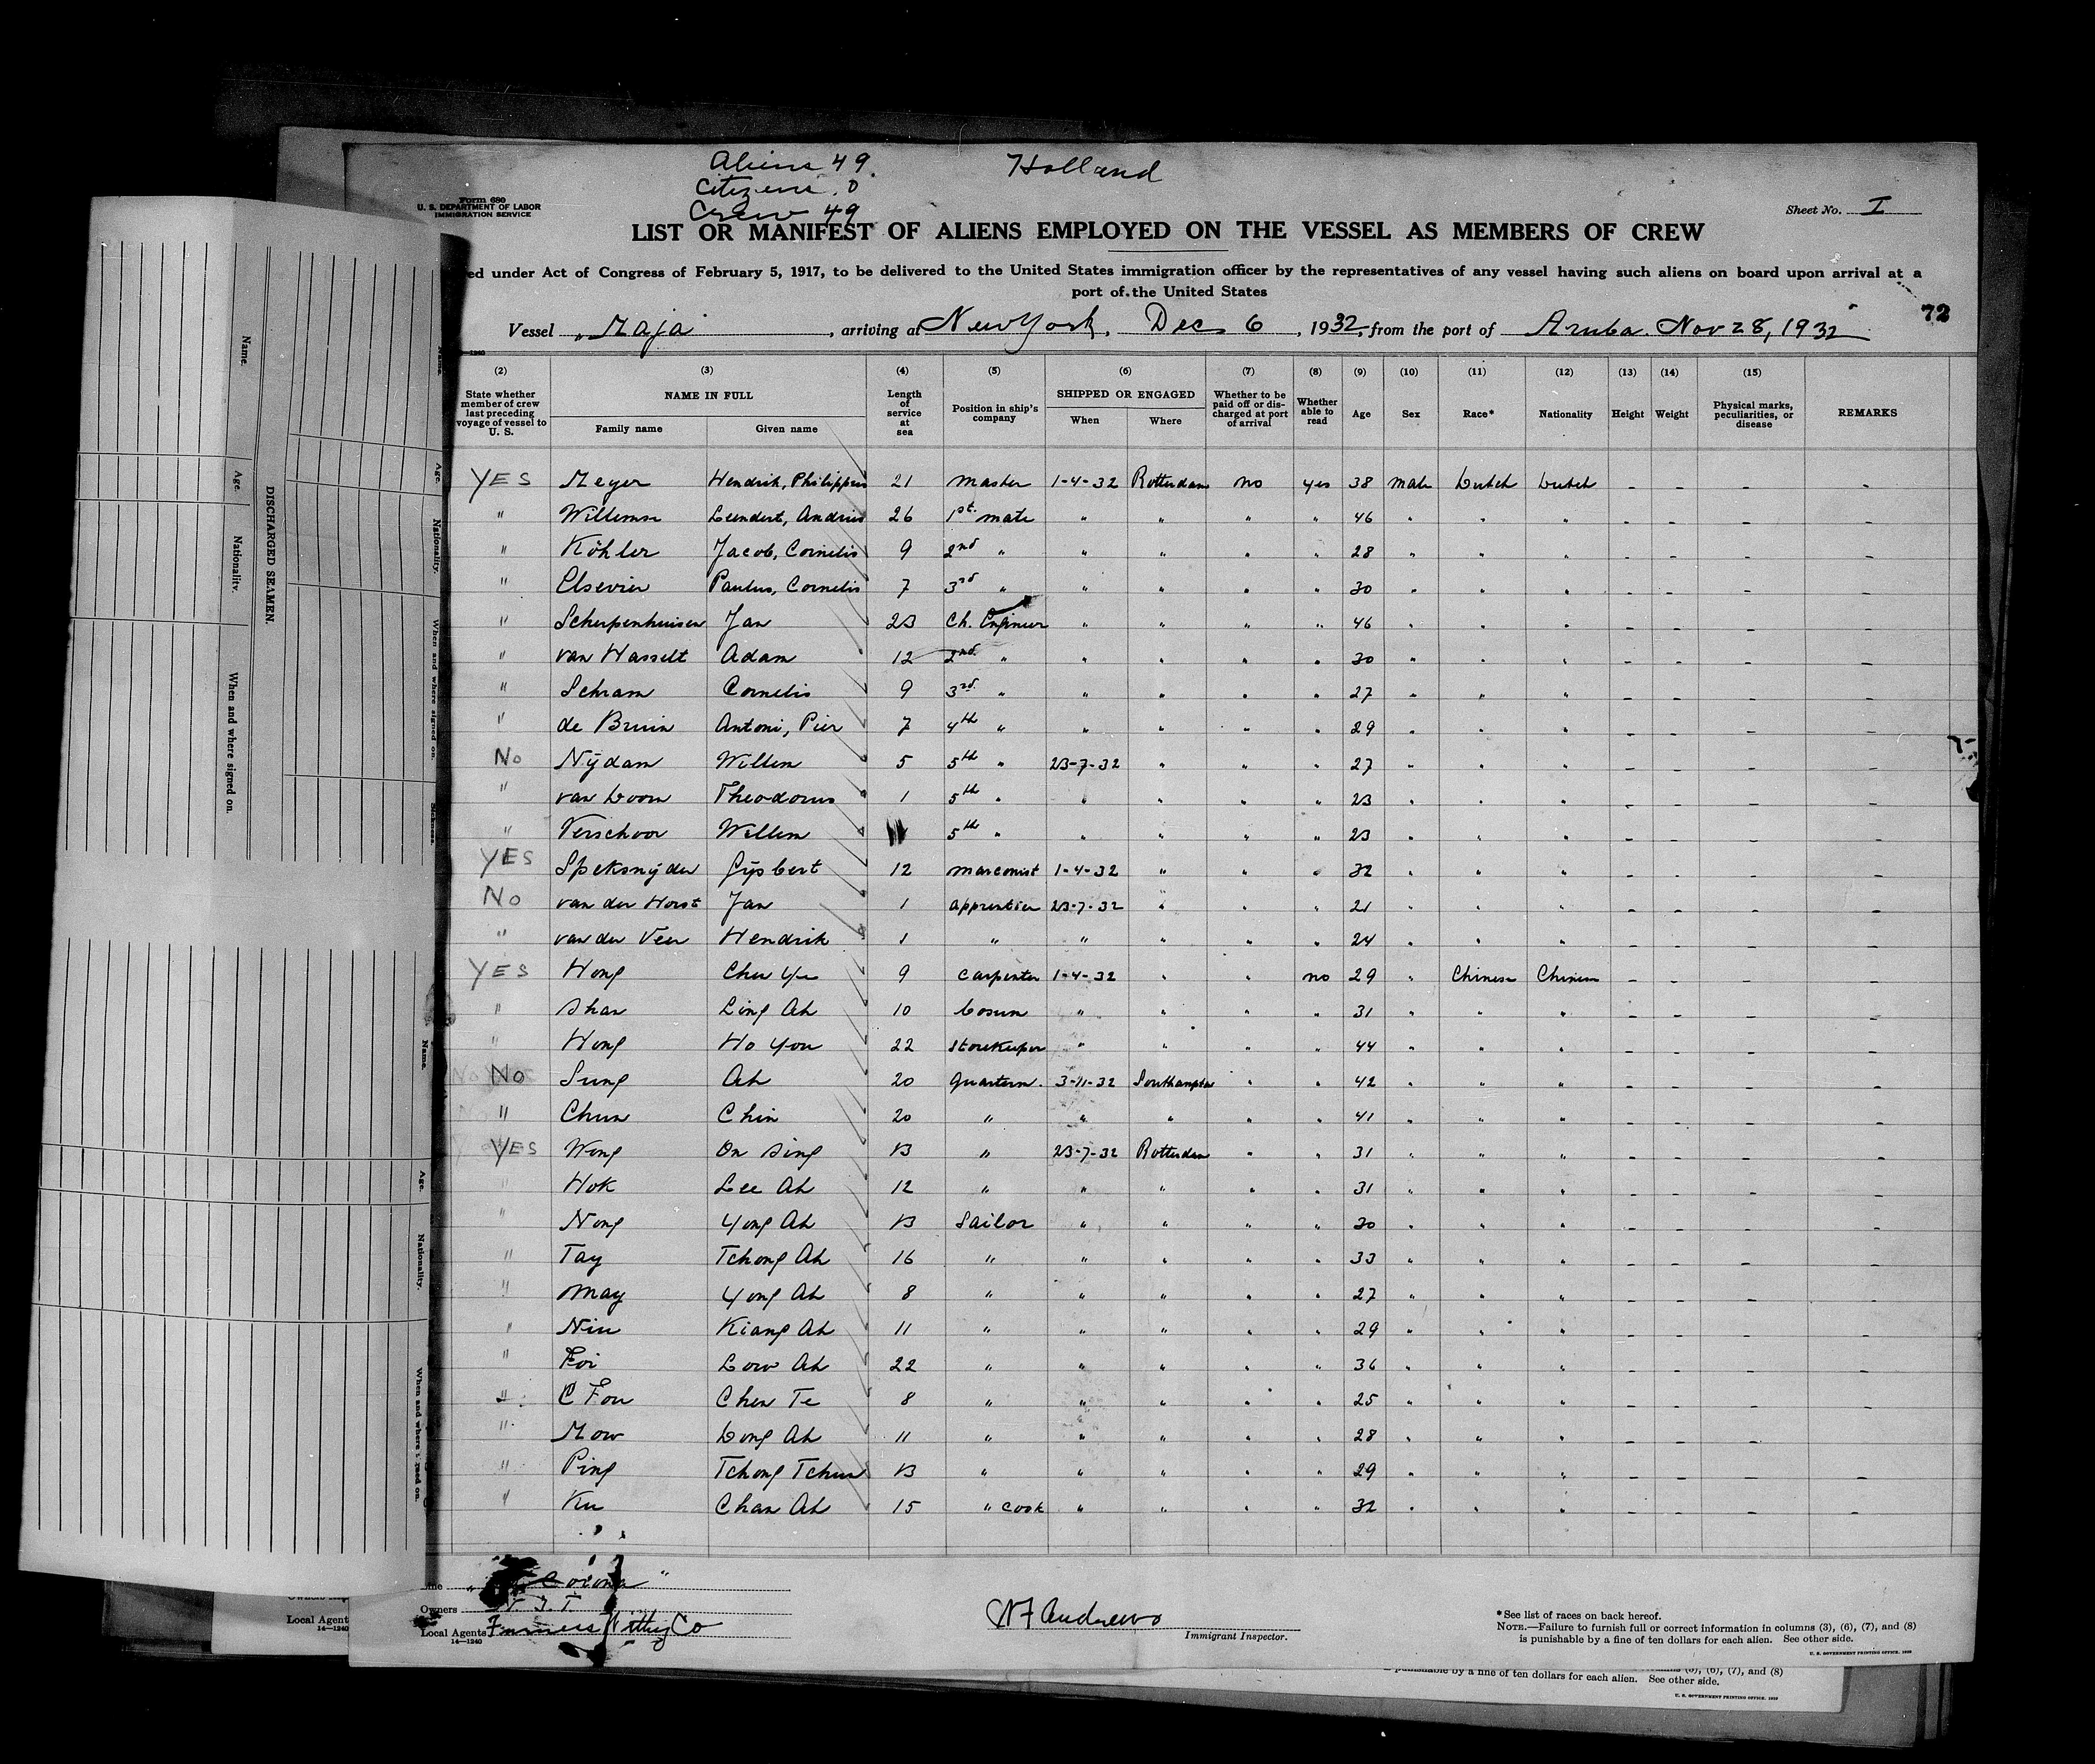 Aliens 49.
Citizens 0
Crew 49
Holland
Form 680
U. S. DEPARTMENT OF LABOR
IMMIGRATION SERVICE
Sheet No. I
LIST OR MANIFEST OF ALIENS EMPLOYED ON THE VESSEL AS MEMBERS OF CREW
ed under Act of Congress of February 5, 1917, to be delivered to the United States immigration officer by the representatives of any vessel having such aliens on board upon arrival at a
port of the United States
72
Vessel "Maja", arriving at New York, Dec 6, 1932, from the port of Aruba. Nov 28, 1932
(2) (3) (4) (5) (6) (7) (8) (9) (10) (11) (12) (13) (14) (15)
State whether member of crew last preceding voyage of vessel to U. S.
NAME IN FULL
Family name Given name
Length of service at sea
Position in ship's company
SHIPPED OR ENGAGED
When Where
Whether to be paid off or discharged at port of arrival
Whether able to read
Age Sex Race* Nationality Height Weight
Physical marks, peculiarities, or disease
REMARKS
YES Meyer Hendrik, Philippus 21 Master 1-4-32 Rotterdam no yes 38 Male Dutch Dutch - - - -
" Willemse Leendert, Andries 26 1st. mate " " " " 46 " " " - - - -
" Köhler Jacob, Cornelis 9 2nd " " " " " 28 " " " - - - -
" Elsevier Paulus, Cornelis 7 3rd " " " " " 30 " " " - - - -
" Scherpenhuisen Jan 23 Ch. Engineer " " " " 46 " " " - - - -
" van Hasselt Adam 12 2nd " " " " " 30 " " " - - - -
" Schram Cornelis 9 3rd " " " " " 27 " " " - - - -
" de Bruin Antoni, Pier 7 4th " " " " " 29 " " " - - - -
No Nÿdam Willem 5 5th " 23-7-32 " " " 27 " " " - - - -
" van Doorn Theodorus 1 5th " " " " " 23 " " " - - - -
" Verschoor Willem 5th " " " " " 23 " " " - - - -
YES Speksnÿder Gÿsbert 12 marconist 1-4-32 " " " 32 " " " - - - -
No van der Horst Jan 1 apprentice 23-7-32 " " " 21 " " " - - - -
" van der Veer Hendrik 1 " " " " " 24 " " " - - - -
YES Hong Chu Ye 9 carpenter 1-4-32 " " no 29 " Chinese Chinese - - - -
" Shan Ling Ah 10 bosun " " " " 31 " " " - - - -
" Hong Ho You 22 Storekeeper " " " " 44 " " " - - - -
No Sung Ah 20 Quarterm. 3-11-32 Southampton " " 42 " " " - - - -
" Chun Chin 20 " " " " " 41 " " " - - - -
YES Wong On Sing 13 " 23-7-32 Rotterdam " " 31 " " " - - - -
" Hok Lee Ah 12 " " " " " 31 " " " - - - -
" Nong Yong Ah 13 Sailor " " " " 30 " " " - - - -
" Tay Tchong Ah 16 " " " " " 33 " " " - - - -
" May Yong Ah 8 " " " " " 27 " " " - - - -
" Niu Kiang Ah 11 " " " " " 29 " " " - - - -
" Foi Low Ah 22 " " " " " 36 " " " - - - -
" C Fou Chen Te 8 " " " " " 25 " " " - - - -
" Mow Dong Ah 11 " " " " " 28 " " " - - - -
" Ping Tchong Tchun 13 " " " " " 29 " " " - - - -
" Ku Chan Ah 15 " cook " " " " 32 " " " - - - -
"Corona"
Owners
Local Agents Furness Withy Co
14—1240
Immigrant Inspector.
Andrews
*See list of races on back hereof.
NOTE.—Failure to furnish full or correct information in columns (3), (6), (7), and (8)
is punishable by a fine of ten dollars for each alien. See other side.
U. S. GOVERNMENT PRINTING OFFICE
Local Agent
14—1240
is punishable by a fine of ten dollars for each alien. See other side.
U. S. GOVERNMENT PRINTING OFFICE
DISCHARGED SEAMEN.
Name. Age. Nationality. When and where signed on.
Name. Age. Nationality. When and where signed on. Sickness.
Name. Age. Nationality. When and where signed on.